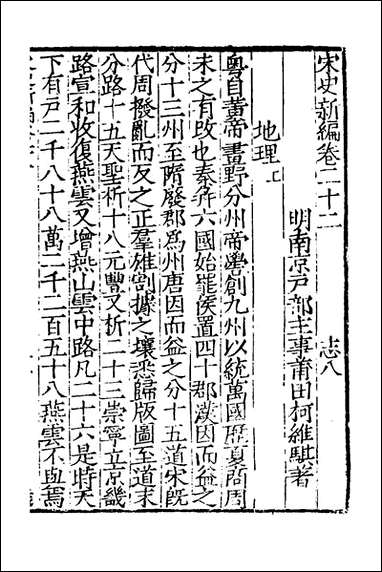 宋史新編卷二十二 志八
明南京戶部主事莆田柯維騏著
地理上
粵自黃帝畫野分州帝嚳創九州以統萬國歷夏商周
未之有改也秦并六國始罷侯置四十郡漢因而益之
分十三州至隋廢郡爲州唐因而益之分十五道宋旣
代周撥亂而反之正羣雄割據之壤悉歸版圖至道末
分路十五天聖析十八元豐又析二十三崇寧立京畿
路宣和收復燕雲又增燕山雲中路凡二十六是時天
下有戶二千八十八萬二千二百五十八燕雲不與焉